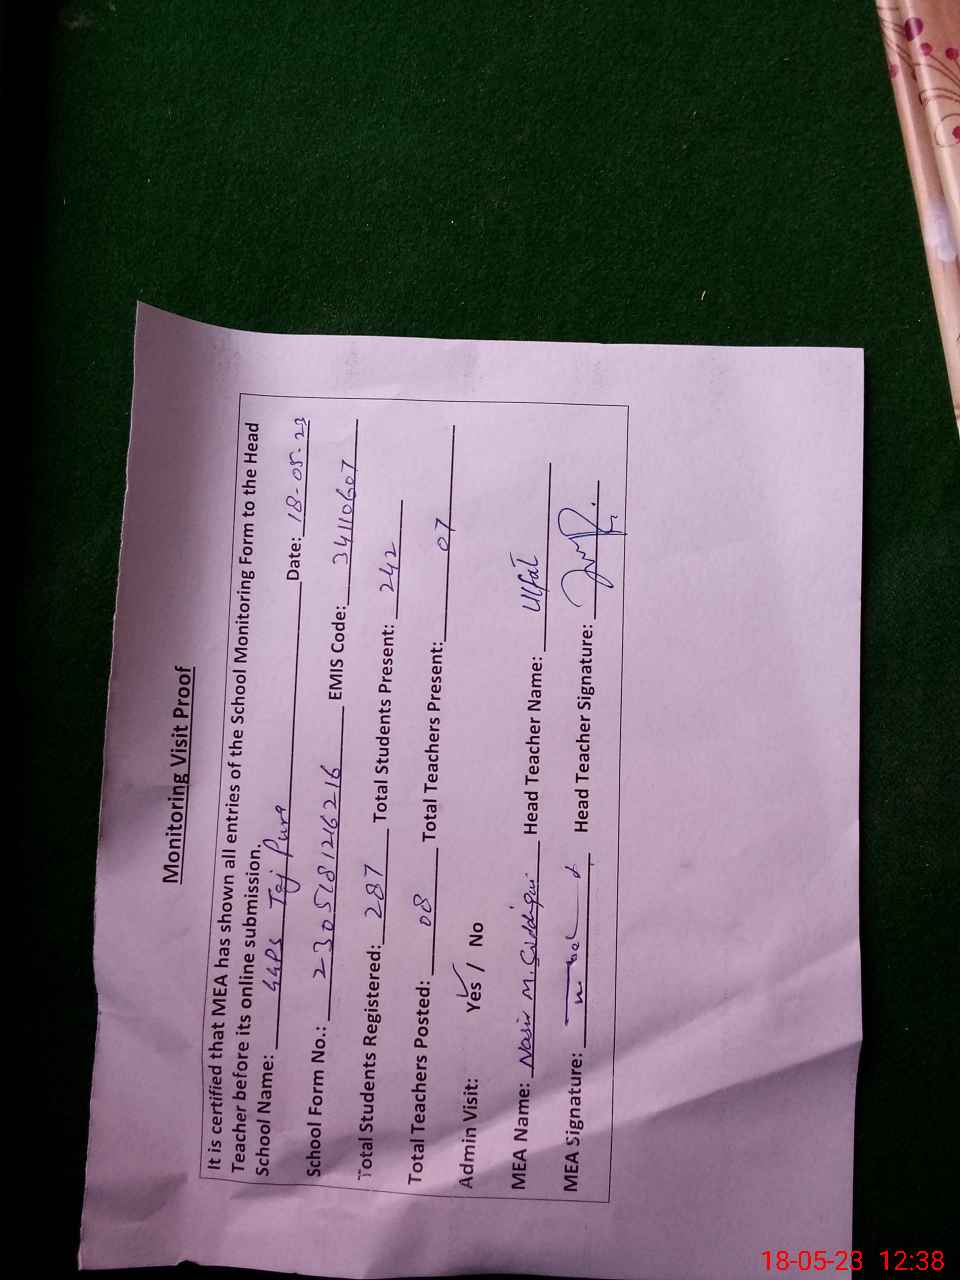 Monitoring Visit Proof
It is certified that MEA has shown all entries of the School Monitoring Form to the Head
Teacher before its online submission.
School Name: GGPS Taj Pura Date: 18-05-23
School Form No.: 2305181216216 EMIS Code: 34110607
Total Students Registered: 287 Total Students Present: 242
Total Teachers Posted: 08 Total Teachers Present: 07
Admin Visit: Yes / No
MEA Name: Nasir M. Siddiqui Head Teacher Name: Ulfat
MEA Signature: Head Teacher Signature:
18-05-23 12:38